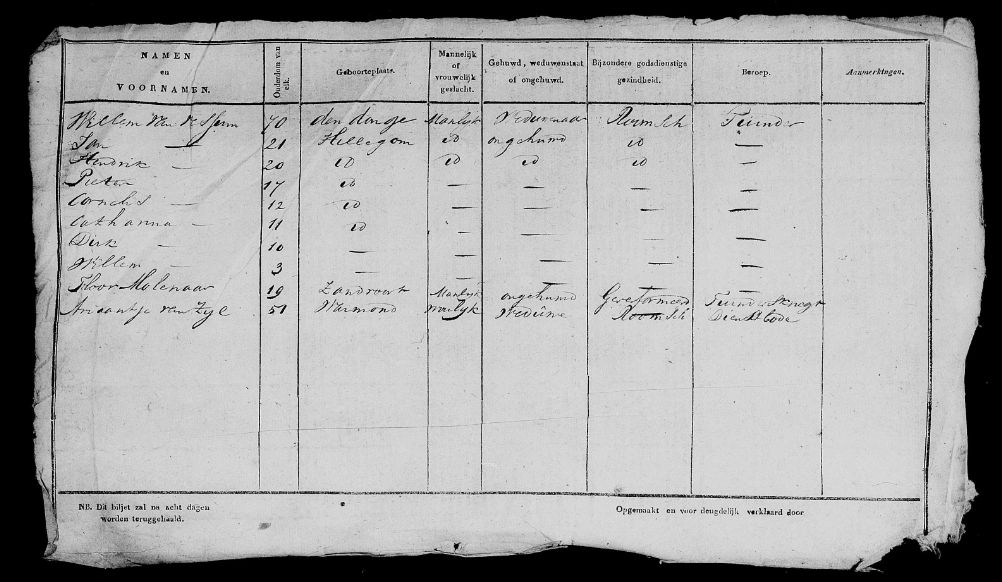 NAMEN
en
VOORNAMEN.
Ouderdom van
elk.
Geboorteplaats.
Mannelijk
of
vrouwelijk
geslacht.
Gehuwd, weduwenstaat
of ongehuwd.
Bijzondere godsdienstige
gezindheid.
Beroep.
Aanmerkingen.
Willem van 70 den Manlyk Weduwenaar Roomsch Tuinder
Jan — 21 Hillegom id ongehuwd id —
Hendrik — 20 id id id id —
Pieter 17 id — — — —
Cornelis — 12 id — — — —
Catharina — 11 id — — — —
Dirk — 10 — — — — —
Willem — 3 — — — — —
Floor Molenaar 19 Zandvoort Manlyk ongehuwd Gereformeerd Tuinders knegt
Ariaantje van Zyl 51 Warmond vroulyk Weduwe Roomsch Dienstbode
NB. Dit biljet zal na acht dagen
worden teruggehaald.
Opgemaakt en voor deugdelijk verklaard door